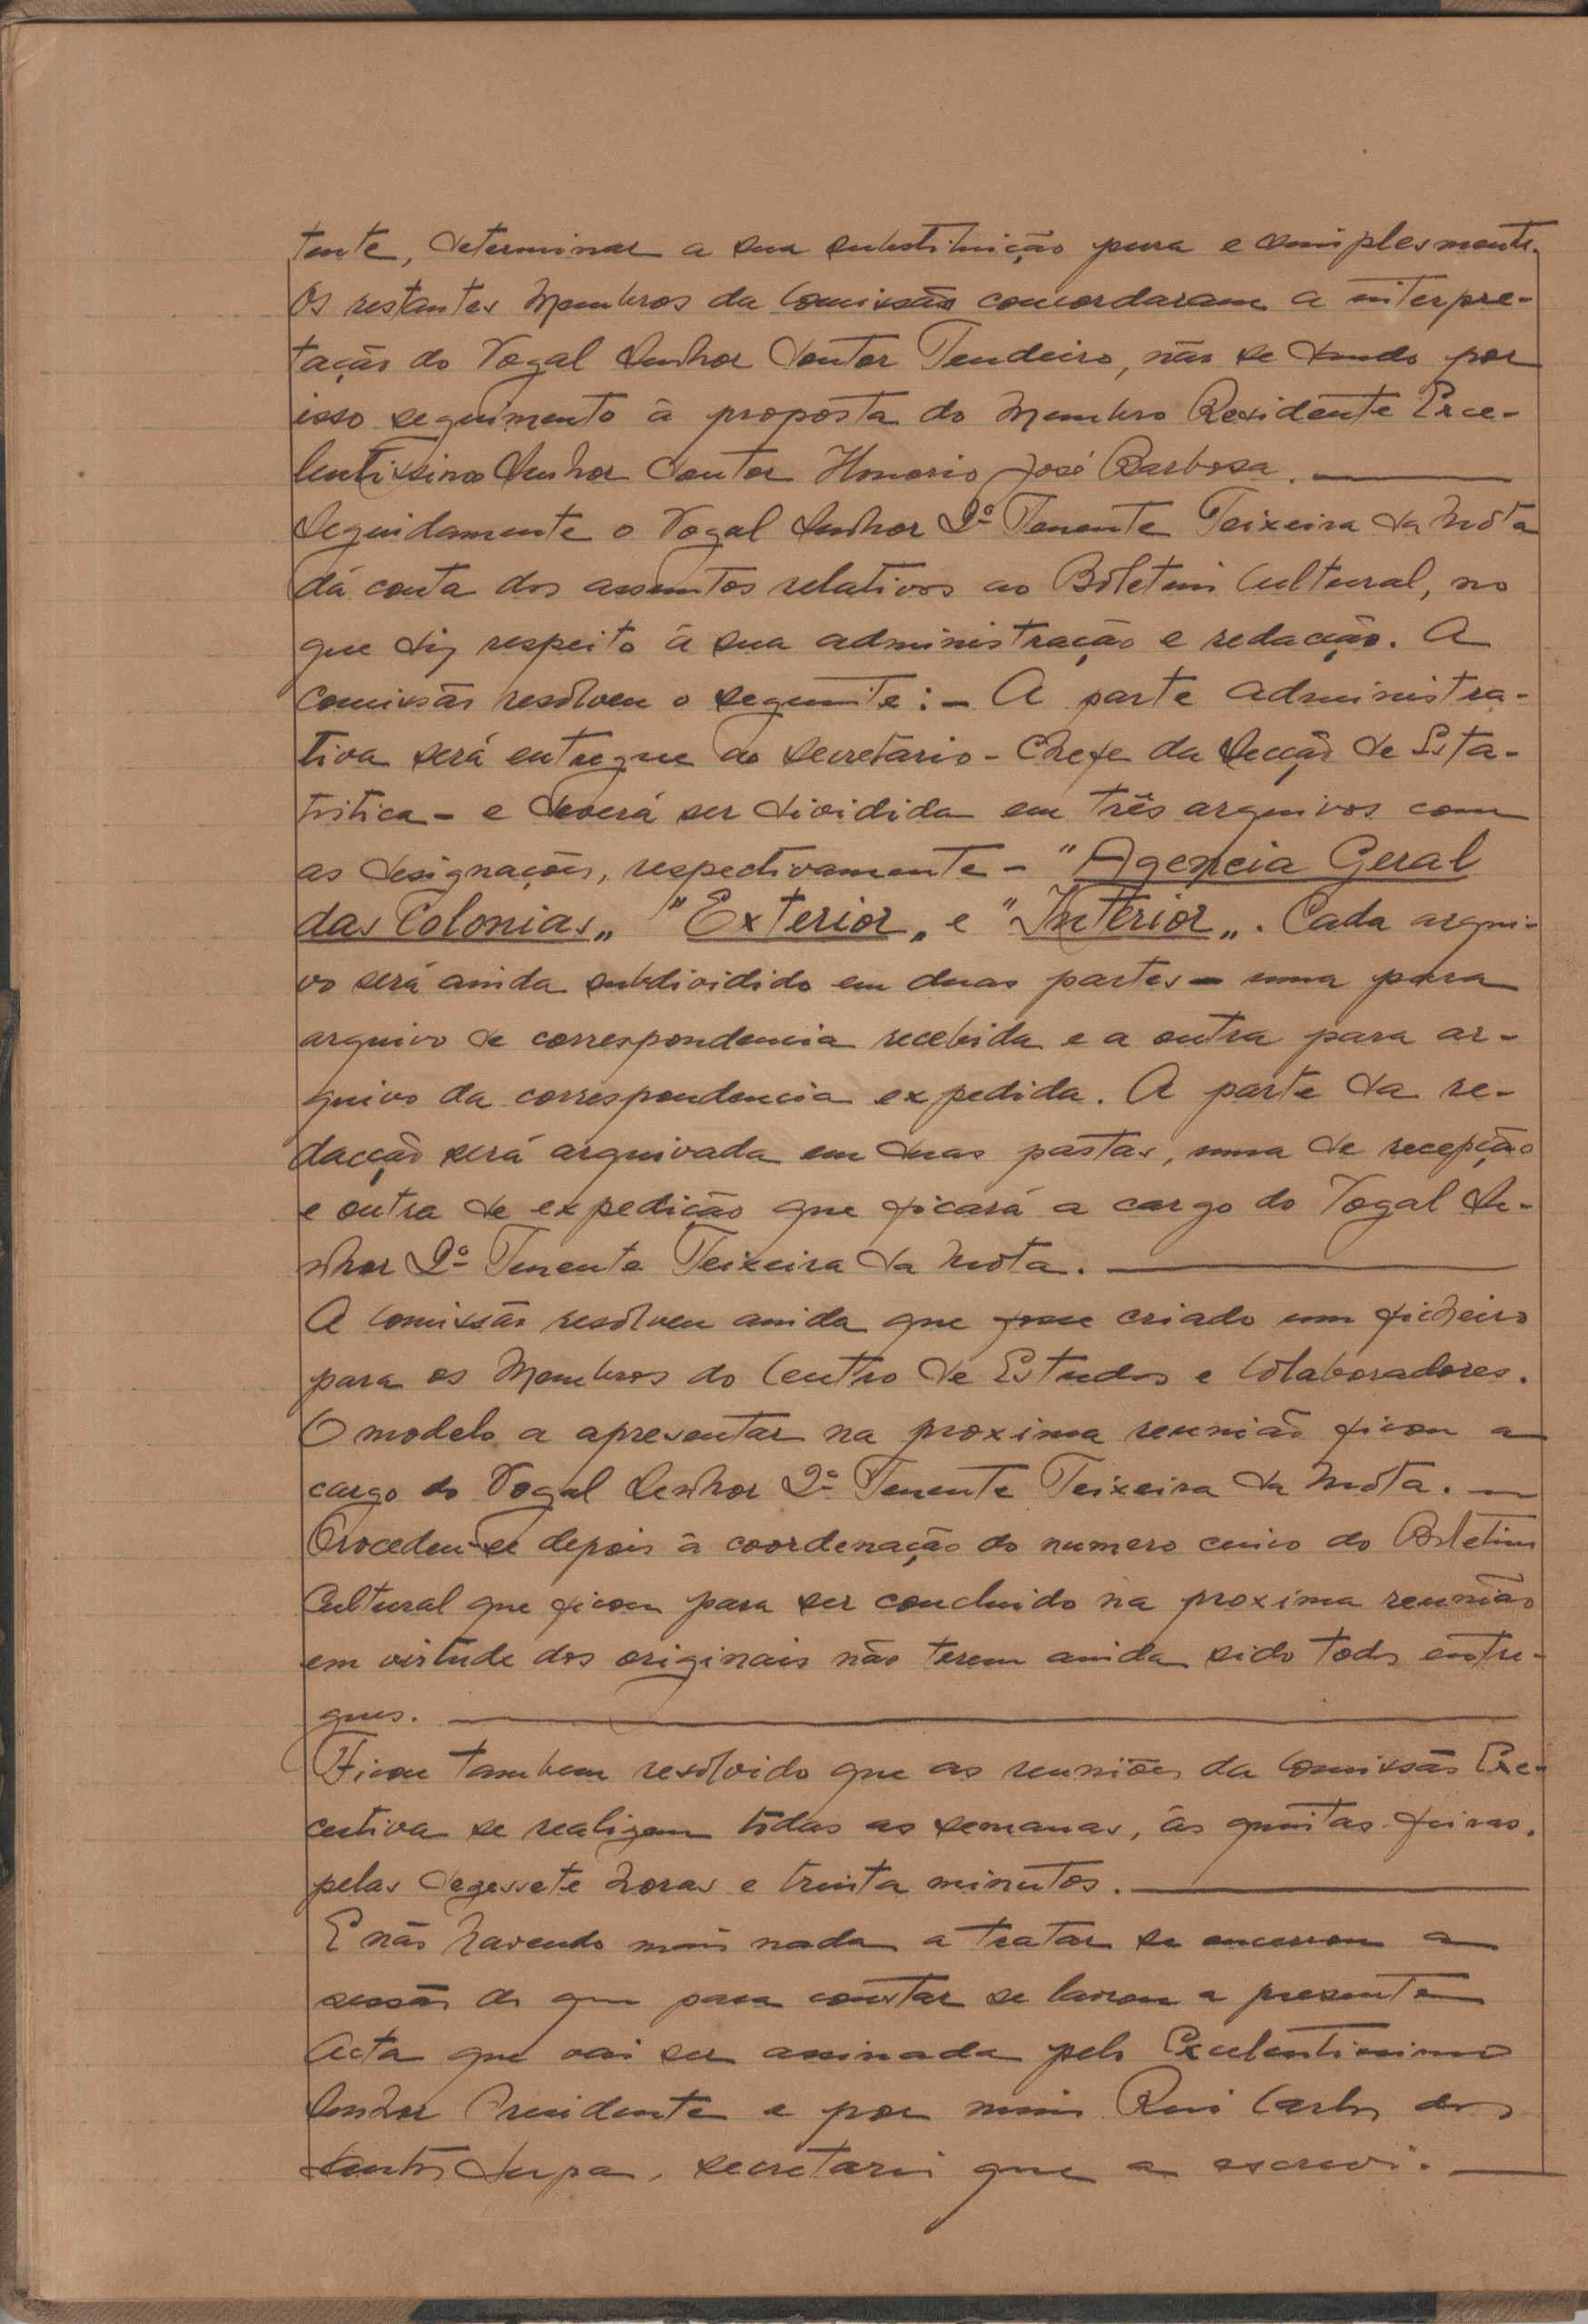 tente, determinar a sua substituição pura e simplesmente.
Os restantes Membros da Comissão concordaram a interpre-
tação do Vogal Senhor doutor Tendeiro, não se dando por
isso seguimento á proposta do Membro Residente Exce-
lentissimo Senhor doutor Honorio José Barbosa.
Seguidamente o Vogal Senhor 2º Tenente Teixeira da Móta
dá conta dos assuntos relativos ao Boletim Cultural, no
que diz respeito á sua administração e redacção. A
Comissão resolveu o seguinte: - A parte administra-
tiva será entregue ao secretario - Chefe da Secção de Esta-
tistica - e deverá ser dividida em três arquivos com
as designações, respectivamente - "Agencia Geral
das Colonias„ "Exterior„ e "Interior„. Cada arqui-
vo será ainda subdividido em duas partes - uma para
arquivo de correspondencia recebida e a outra para ar-
quivo da correspondencia expedida. A parte da re-
dacção será arquivada em duas pastas, uma de recepção
e outra de expedição que ficará a cargo do Vogal Se-
nhor 2º Tenente Teixeira da Móta.
A Comissão resolveu ainda que fosse criado um ficheiro
para os Membros do Centro de Estudos e Colaboradores.
O modelo a apresentar na proxima reunião ficou a
cargo do Vogal Senhor 2º Tenente Teixeira da Móta.
Procedeu-se depois á coordenação do numero cinco do Boletim
Cultural que ficou para ser concluido na proxima reunião
em virtude dos originais não terem ainda sido todos entre-
gues.
Ficou tambem resolvido que as reuniões da Comissão Exe-
cutiva se realizem tôdas as semanas, ás quintas feiras,
pelas dezessete horas e trinta minutos.
E não havendo mais nada a tratar se encerrou a
sessão de que para constar se lavrou a presente
Acta que vai ser assinada pelo Excelentissimo
Senhor Presidente e por mim Rui Carlos dos
Santos Serpa, secretario que a escrevi.